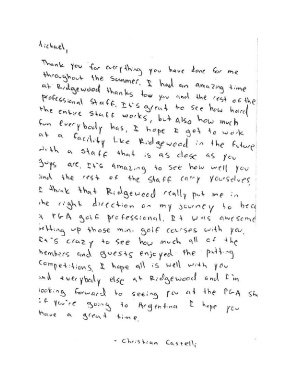 Michael,
Thank you for everything you have done for me
throughout the summer. I had an amazing time
at Ridgewood thanks to you and the rest of the
professional staff. It's great to see how hard
the entire staff works, but also how much
fun everybody has. I hope I get to work
at a facility like Ridgewood in the future
with a staff that is as close as you
guys are. It's amazing to see how well you
and the rest of the staff carry yourselves.
I think that Ridgewood really put me in
the right direction on my journey to
a PGA golf professional. It was awesome
setting up those mini golf courses with you.
It's crazy to see how much all of the
members and guests enjoyed the putting
competitions. I hope all is well with you
and everybody else at Ridgewood and I'm
looking forward to seeing you at the PGA
if you're going to Argentina I hope you
have a great time.
- Christian Castelli